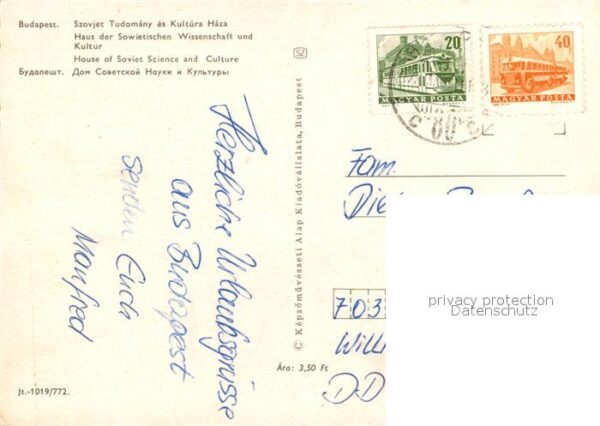 Budapest. Szovjet Tudomány és Kultúra Háza
Haus der Sowietischen Wissenschaft und
Kultur
House of Soviet Science and Culture
Будапешт. Дом Советской Науки и Культуры
SZ
20
MAGYAR POSTA
40
MAGYAR POSTA
Herzliche Urlaubsgrüsse
aus Budapest
senden Euch
Manfred
© Képzőművészeti Alap Kiadóvállalata, Budapest
Fam.
703
privacy protection
Datenschutz
Ára: 3,50 Ft
Jt.-1019/772.